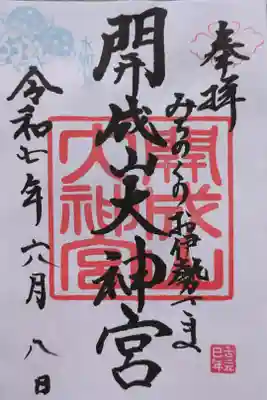 奉拝
みちのくのお伊勢さま
開成山大神宮
令和七年六月八日
開成山
大神宮